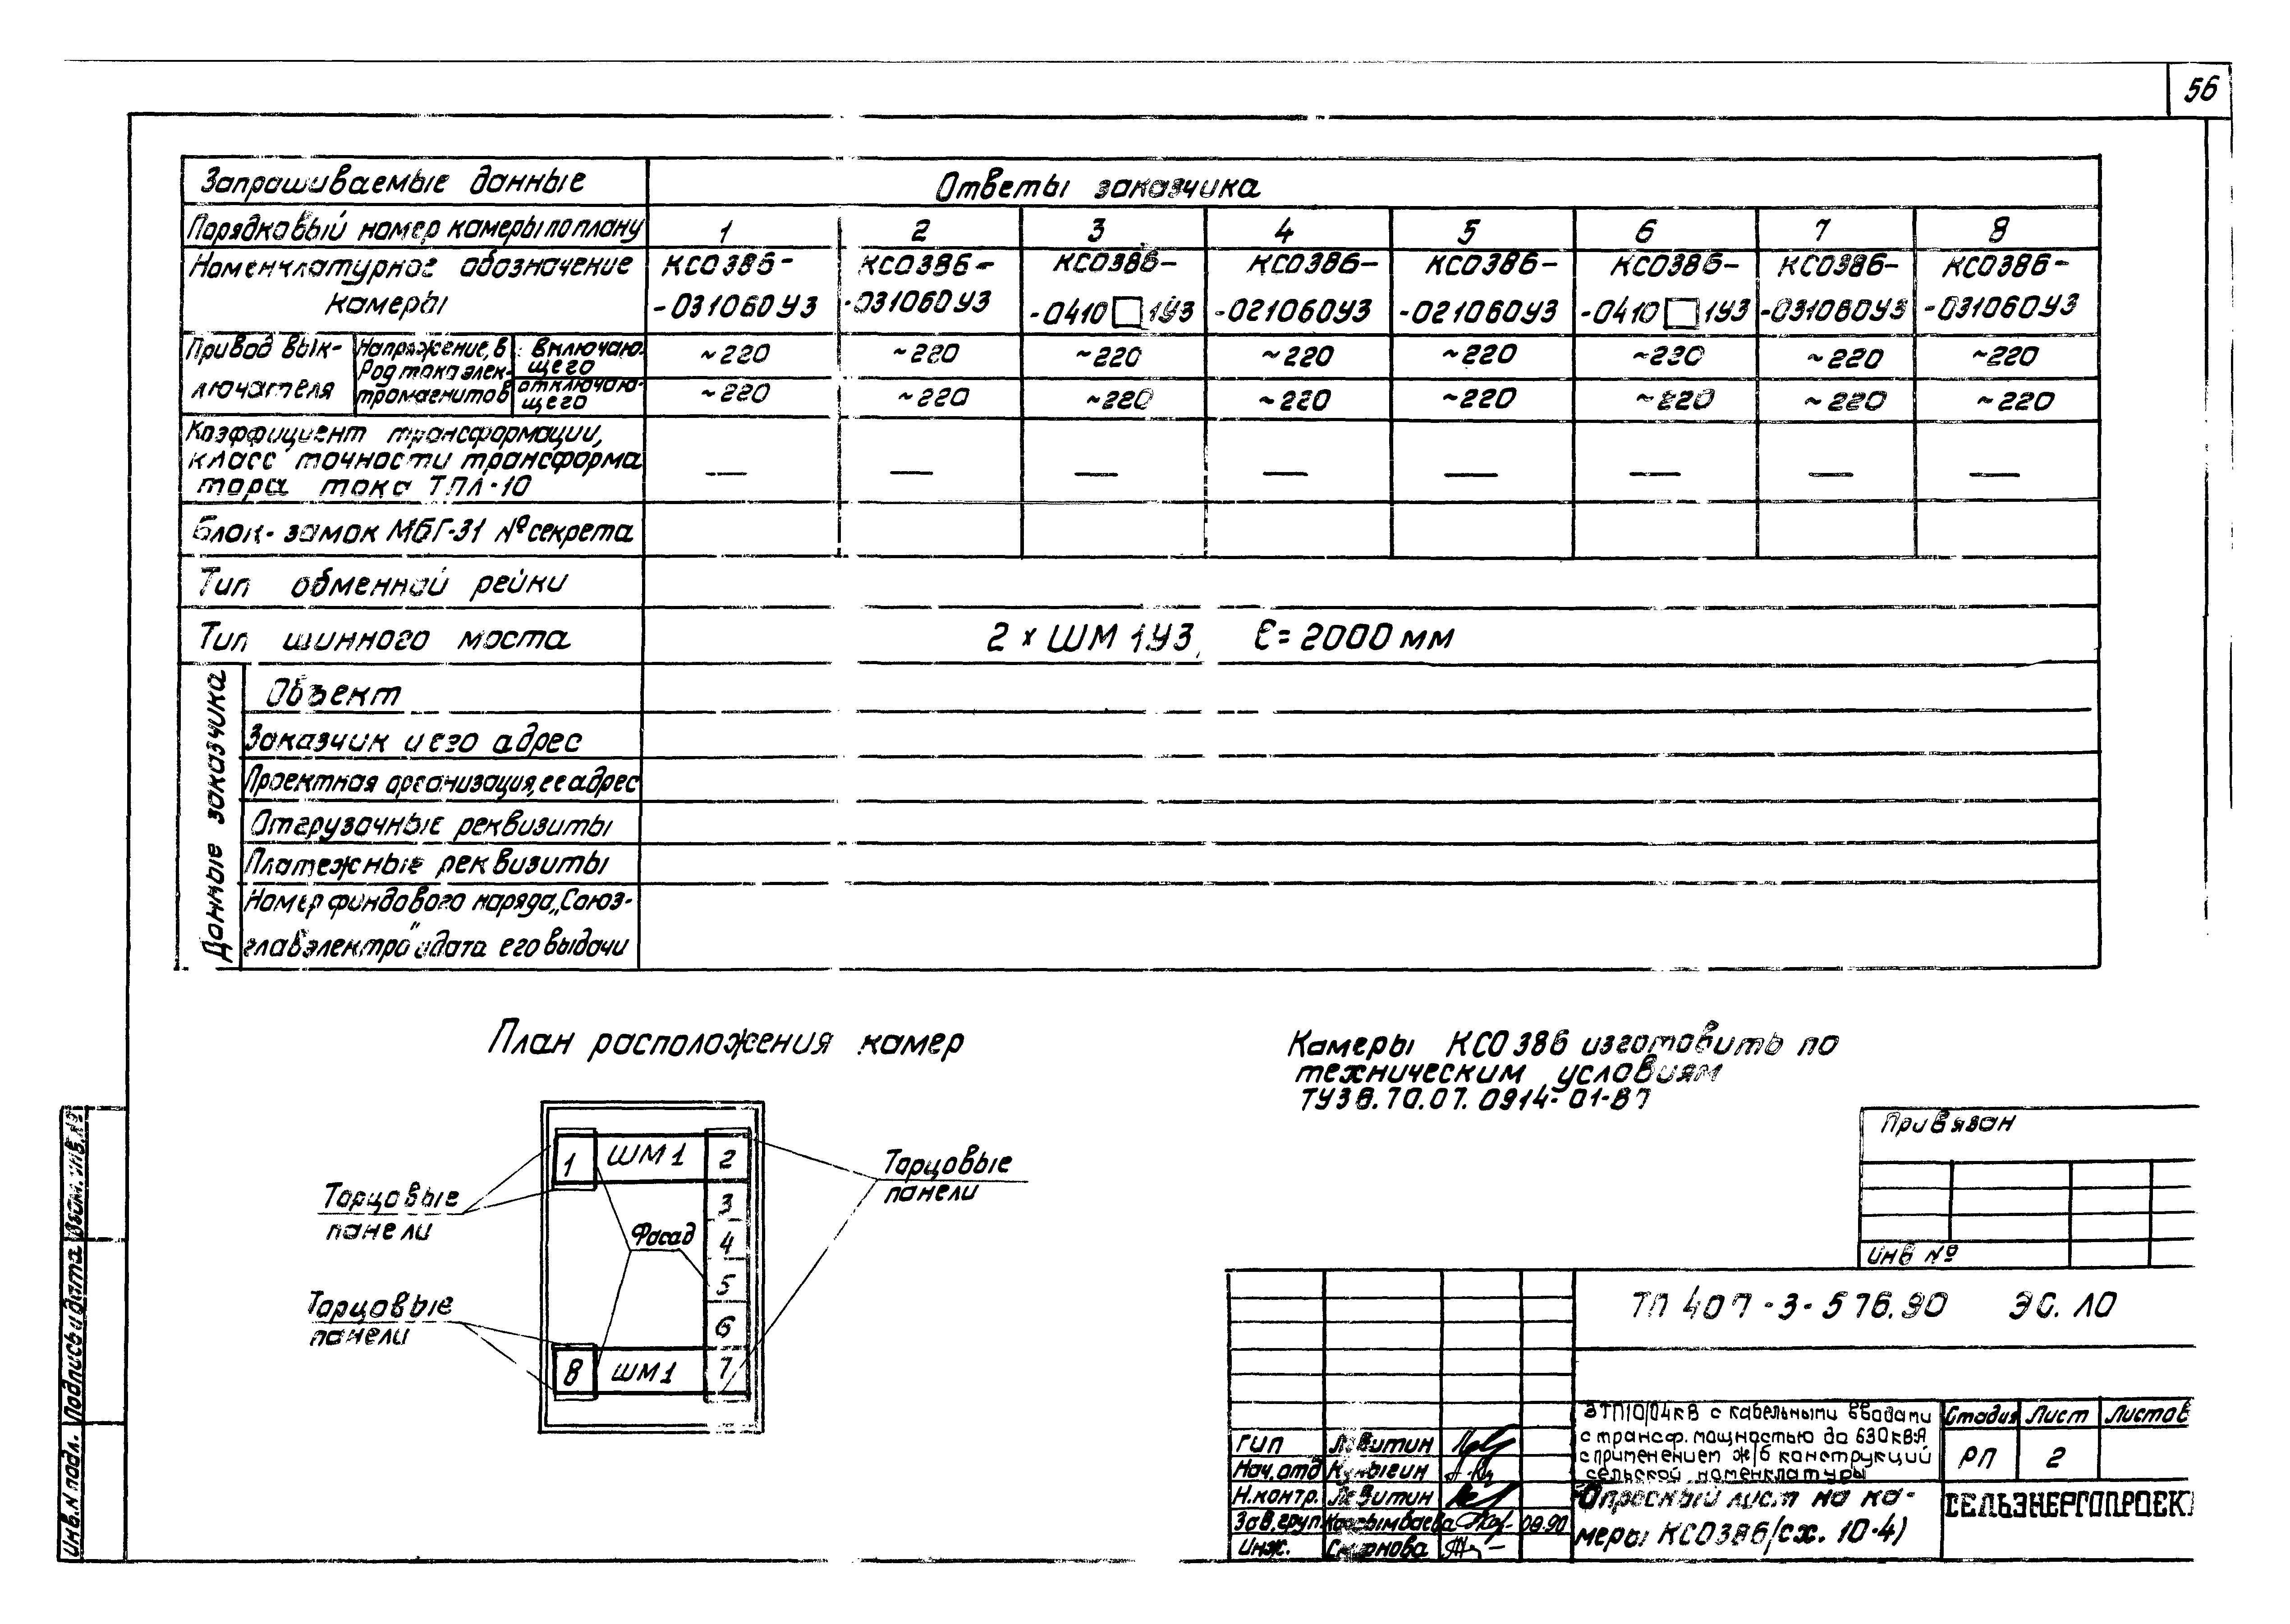 56
Запрашиваемые данные
Ответы заказчика
Порядковый номер камеры по плану 1 2 3 4 5 6 7 8
Номенклатурное обозначение камеры
КСО386- КСО386- КСО386- КСО386- КСО386- КСО386- КСО386- КСО386-
-031060У3 -031060У3 -0410□1У3 -021060У3 -021060У3 -0410□1У3 -031060У3 -031060У3
Привод вык-
лючателя
Напряжение, в
Род тока элек-
тромагнитов
включаю-
щего
~220 ~220 ~220 ~220 ~220 ~230 ~220 ~220
отключаю-
щего
~220 ~220 ~220 ~220 ~220 ~220 ~220 ~220
Коэффициент трансформации,
класс точности трансформа
тора тока ТПЛ-10
— — — — — — — —
Блок-замок МБГ-31 № секрета
Тип обменной рейки
Тип шинного моста
2 × ШМ 1У3, ℓ= 2000 мм
Данные заказчика
Объект
Заказчик и его адрес
Проектная организация, ее адрес
Отгрузочные реквизиты
Платежные реквизиты
Номер фондового наряда „Союз-
главэлектро" и дата его выдачи
План расположения камер
Камеры КСО 386 изготовить по
техническим условиям
ТУ36.70.07.0914-01-87
1 ШМ1 2
3
4
5
6
8 ШМ1 7
Фасад
Торцовые
панели
Торцовые
панели
Торцовые
панели
Привязан
Инв №
ТП 407-3-576.90 ЭС.ЛО
ЗТП10/0,4кВ с кабельными вводами
с трансф. мощностью до 630кВ·А
с применением ж/б конструкций
сельской номенклатуры
Стадия Лист Листов
РП 2
Опросный лист на ка-
меры КСО386 (сх. 10-4)
СЕЛЬЭНЕРГОПРОЕК
ГИП Левитин
Нач.отд
Н.контр. Левитин
Зав.груп. 09.90
Инж. Смирнова
Инв.N подл. Подпись и дата Взам.инв.№